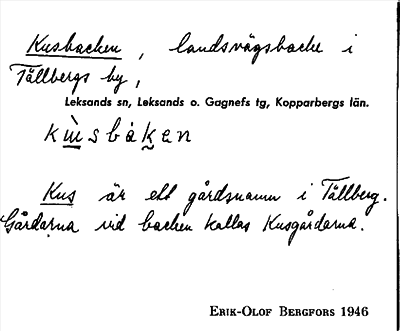 Kusbacken, landsvägsbacke i
Tällbergs by,
Leksands sn, Leksands o. Gagnefs tg, Kopparbergs län.
kùsbàk̰en
Kus är ett gårdsnamn i Tällberg.
Gårdarna vid backen kallas Kusgårdarna.
ERIK-OLOF BERGFORS 1946